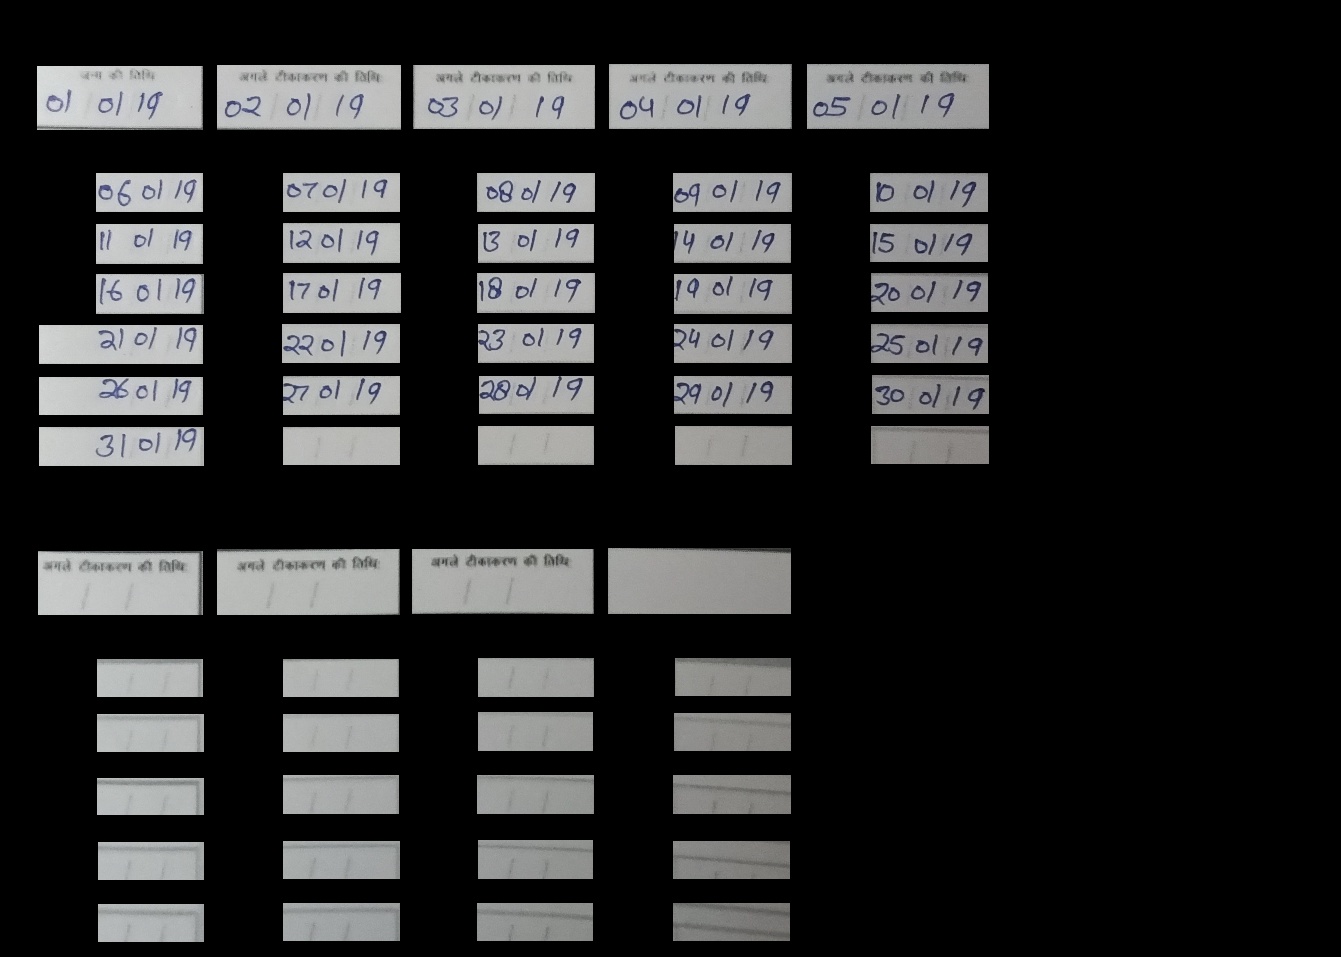 जन्म की तिथि अगले टीकाकरण की तिथि: अगले टीकाकरण की तिथि: अगले टीकाकरण की तिथि: अगले टीकाकरण की तिथि:
01/01/19 02/01/19 03/01/19 04/01/19 05/01/19
06/01/19 07/01/19 08/01/19 09/01/19 10/01/19
11/01/19 12/01/19 13/01/19 14/01/19 15/01/19
16/01/19 17/01/19 18/01/19 19/01/19 20/01/19
21/01/19 22/01/19 23/01/19 24/01/19 25/01/19
26/01/19 27/01/19 28/01/19 29/01/19 30/01/19
31/01/19 / / / / / / / /
अगले टीकाकरण की तिथि: अगले टीकाकरण की तिथि: अगले टीकाकरण की तिथि: